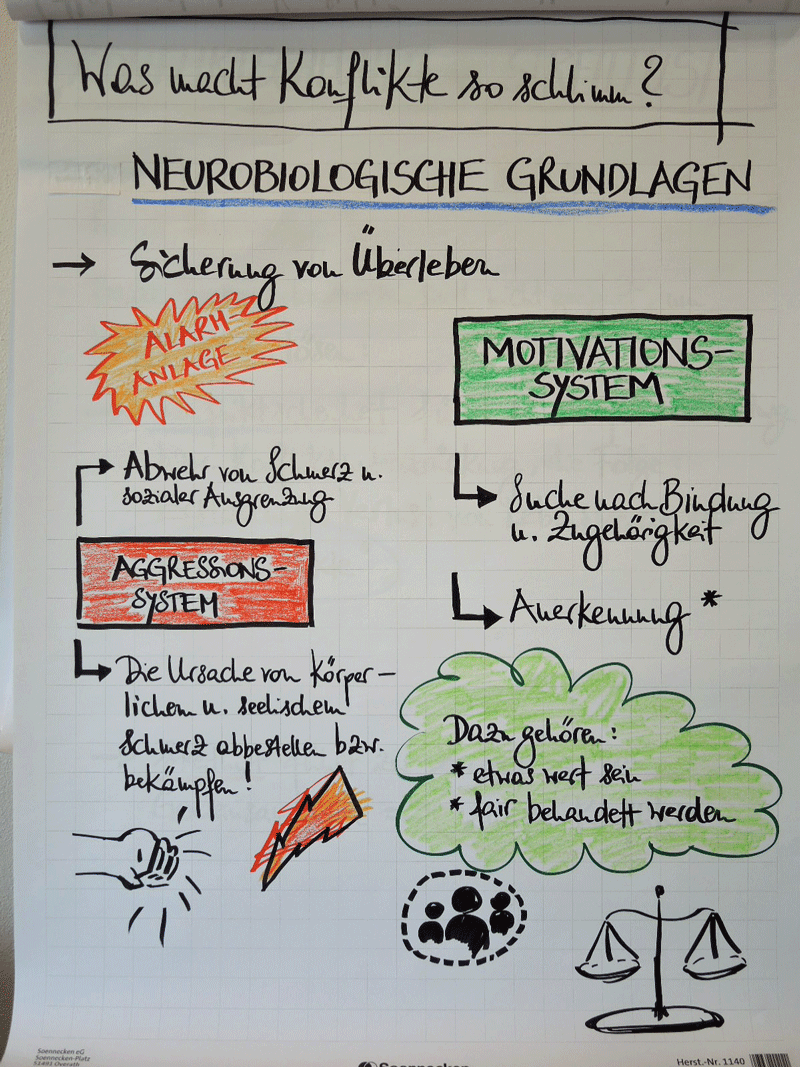 Was macht Konflikte so schlimm?
NEUROBIOLOGISCHE GRUNDLAGEN
→ Sicherung von Überleben
ALARM-
ANLAGE
Abwehr von Schmerz u.
sozialer Ausgrenzung
AGGRESSIONS-
SYSTEM
Die Ursache von körper-
lichem u. seelischem
Schmerz abbestellen bzw.
bekämpfen!
MOTIVATIONS-
SYSTEM
Suche nach Bindung
u. Zugehörigkeit
Anerkennung *
Dazu gehören:
* etwas wert sein
* fair behandelt werden
Soennecken eG
Soennecken-Platz
51491 Overath
Soennecken
Herst.-Nr. 1140